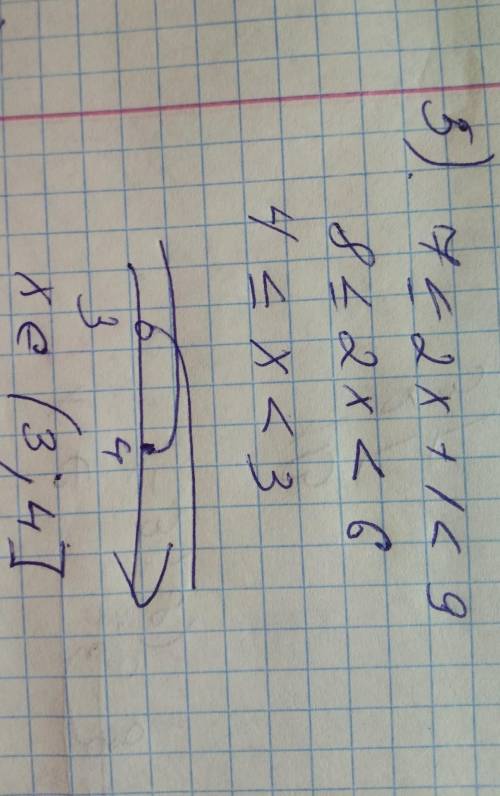 5) 7 ≤ 2x + 1 < 9
8 ≤ 2x < 6
4 ≤ x < 3
3 4
x e (3; 4]